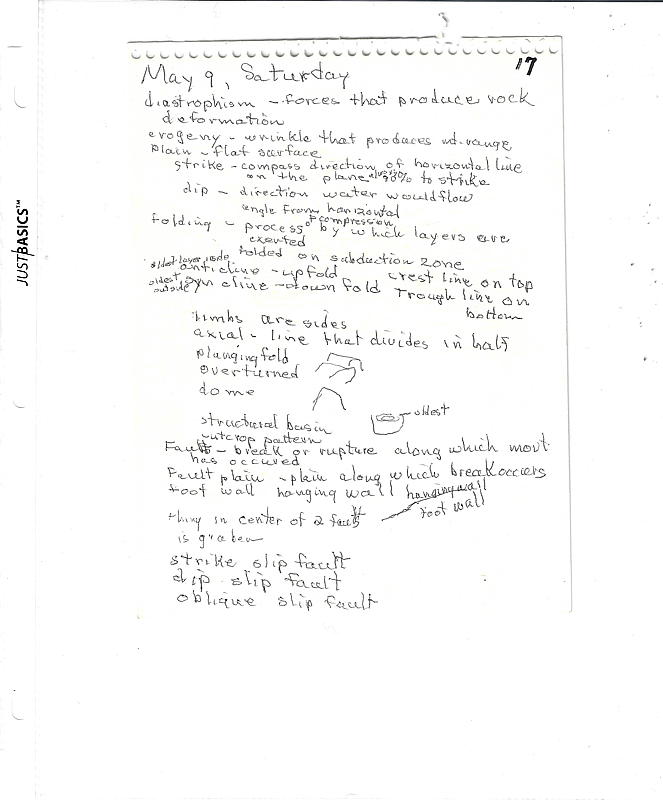 JUSTBASICS™
17
May 9, Saturday
diastrophism - forces that produce rock
deformation
erogeny - wrinkle that produces mt. range
plain - flat surface
strike - compass direction of horizontal line
on the plane always 90% to strike
dip - direction water would flow
angle from horizontal
folding - process of compression by which layers are
exerted
folded on subduction zone
oldest layer inside anticline - upfold crest line on top
oldest outside syncline - down fold Trough line on
bottom
limbs are sides
axial - line that divides in half
plunging fold
overturned
dome
oldest
structural basin
outcrop pattern
Fault - break or rupture along which movt
has occured
Fault plain - plain along which break occurs
foot wall hanging wall hanging wall
foot wall
thing in center of 2 fault
is graben
strike slip fault
dip slip fault
oblique slip fault